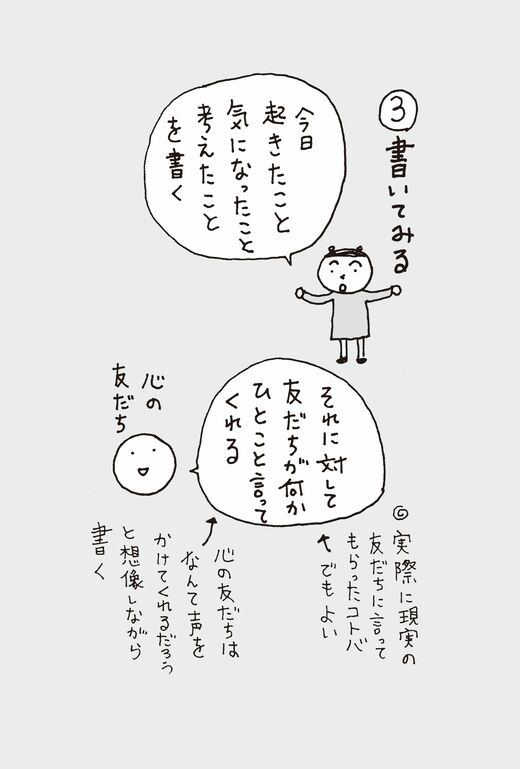 ③書いてみる
今日
起きたこと
気になったこと
考えたこと
を書く
心の
友だち
それに対して
友だちが何か
ひとこと言って
くれる
◎実際に現実の
友だちに言って
もらったコトバ
でもよい
心の友だちは
なんて声を
かけてくれるだろう
と想像しながら
書く